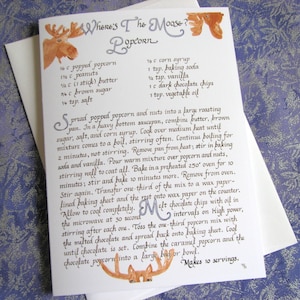 Where's The Moose?
Popcorn
c popped popcorn
c peanuts
c (1 stick) butter
c brown sugar
tsp. salt
c corn syrup
tsp. baking soda
tsp. vanilla
1 c dark chocolate chips
1 tsp. vegetable oil
Spread popped popcorn and nuts into a large roasting
pan. In a heavy bottom saucepan, combine butter, brown
sugar, salt, and corn syrup. Cook over medium heat until
mixture comes to a boil, stirring often. Continue boiling for
2 minutes, not stirring. Remove pan from heat; stir in baking
soda and vanilla. Pour warm mixture over popcorn and nuts,
stirring well to coat all. Bake in a preheated 250° oven for 10
minutes; stir and bake 10 minutes more. Remove from oven.
Stir again. Transfer one-third of the mix to a wax paper-
lined baking sheet and the rest onto wax paper on the counter.
Allow to cool completely. Melt chocolate chips with oil in
the microwave at 30 intervals on High power,
stirring after each one. Toss the one-third popcorn mix with
the melted chocolate and spread back onto baking sheet. Cool
until chocolate is set. Combine the caramel popcorn and the
chocolate popcorn into a large bowl.
Makes 10 servings.